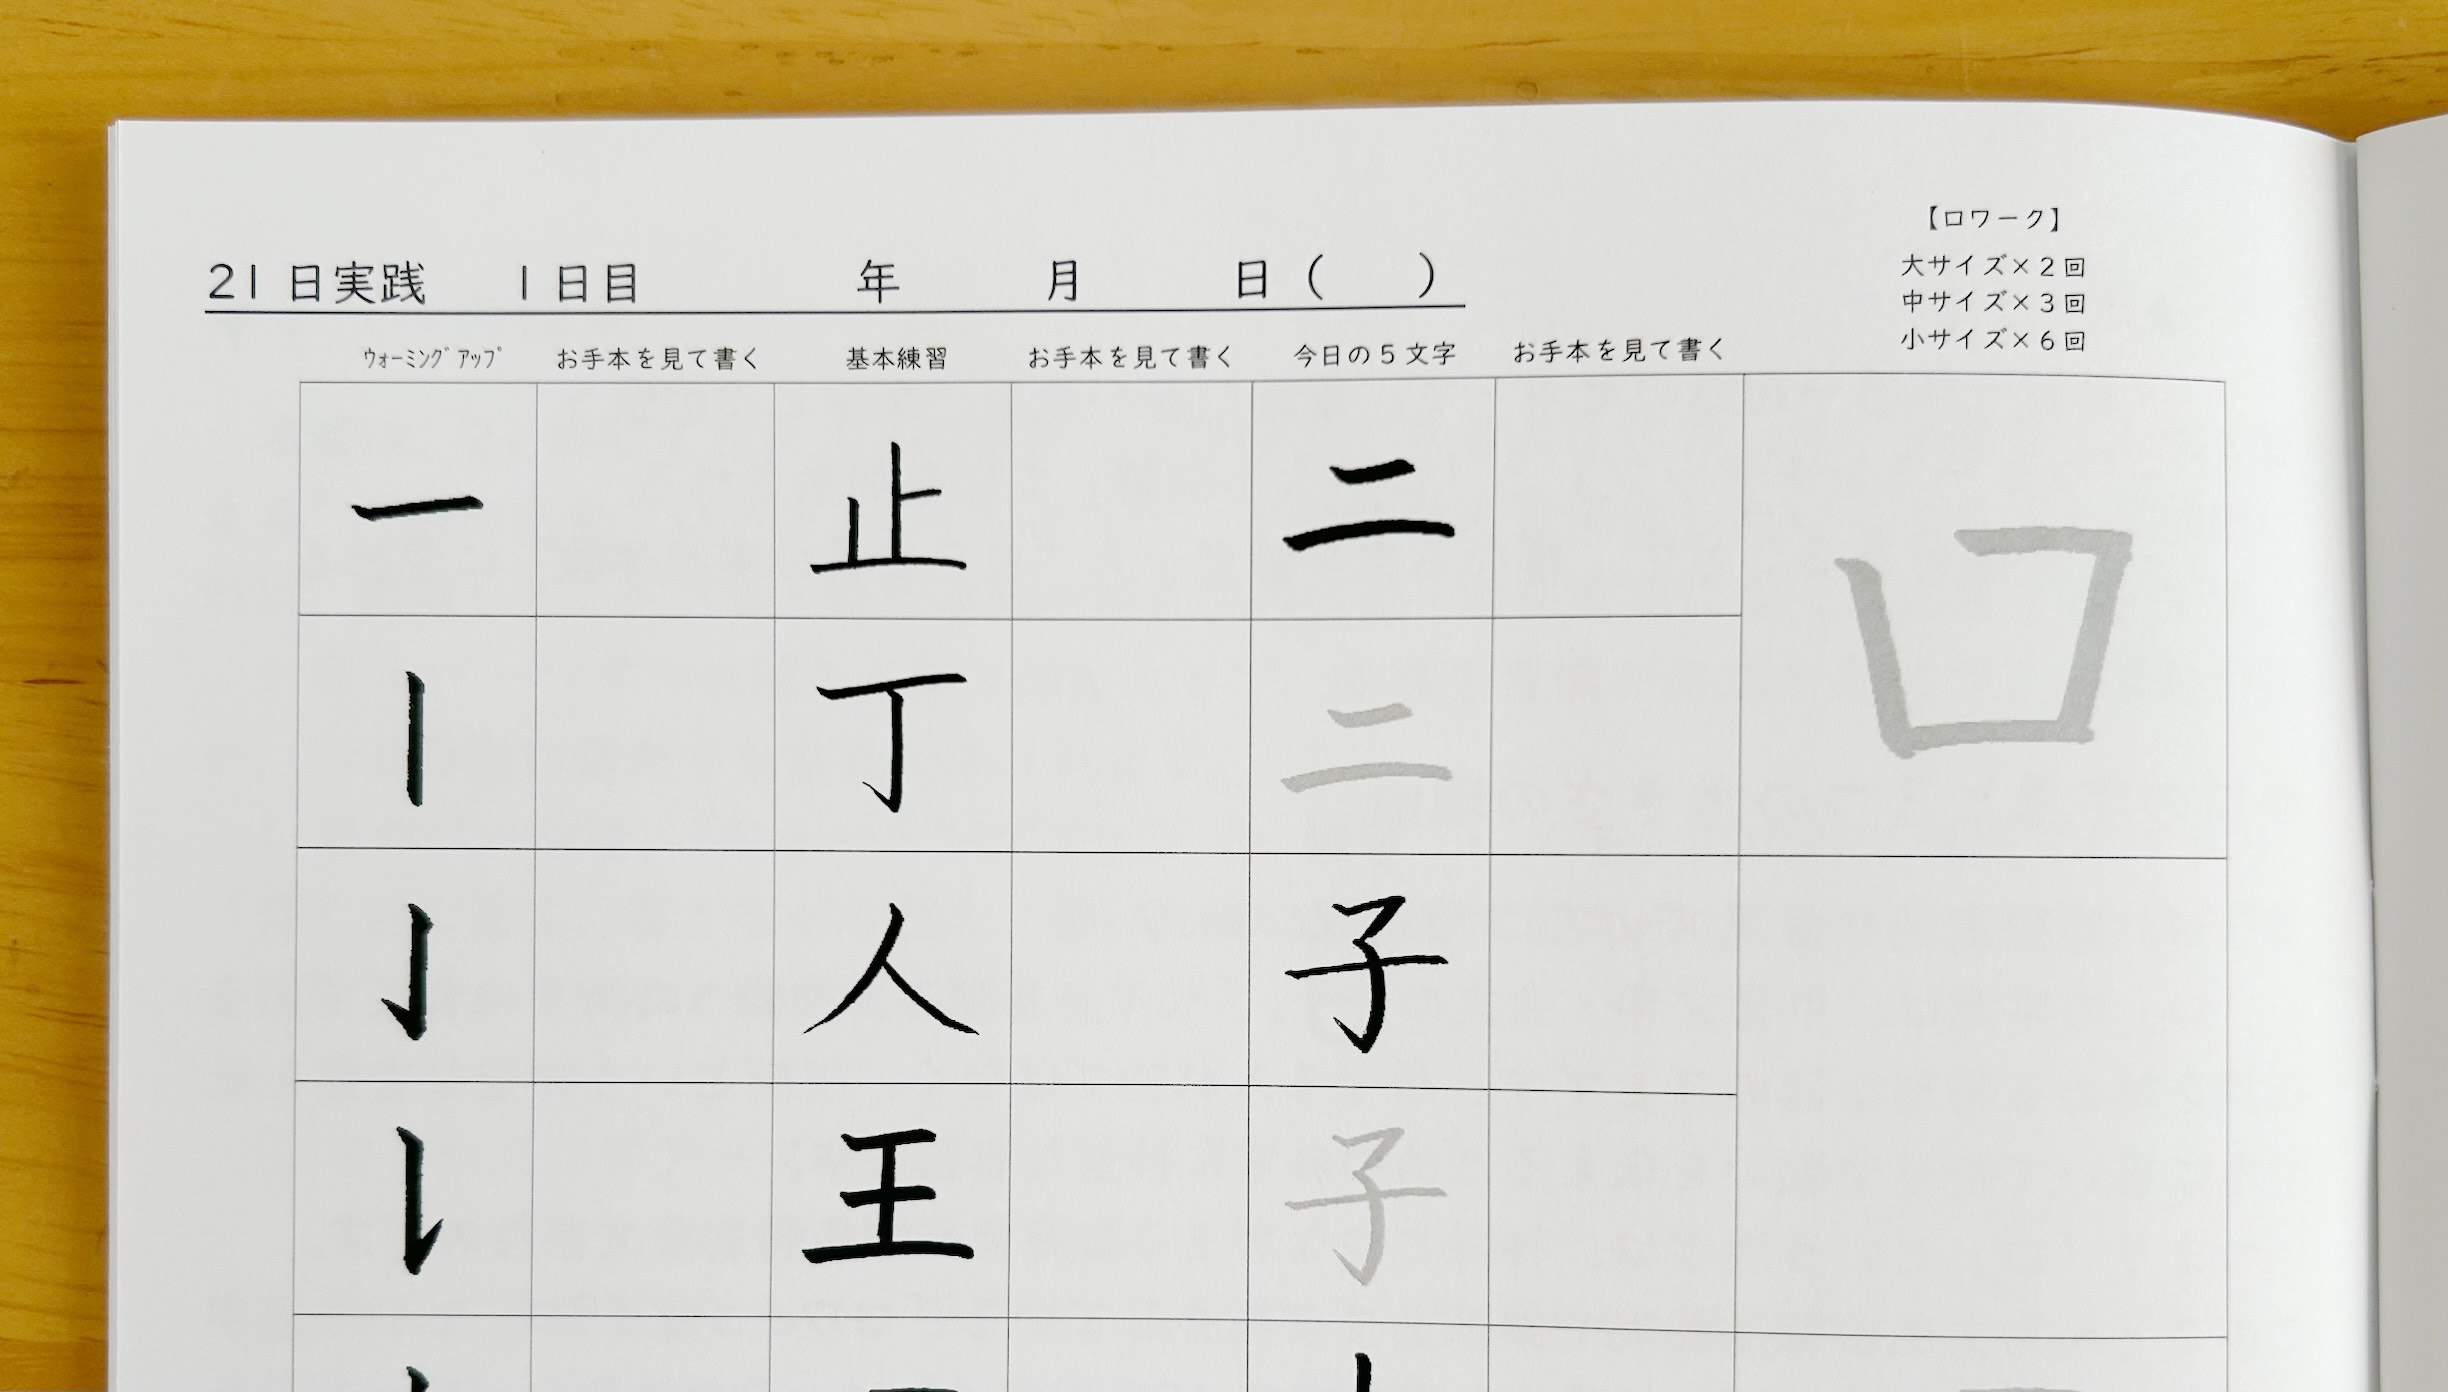 【口ワーク】
大サイズ×2回
中サイズ×3回
小サイズ×6回
21日実践 1日目 年 月 日( )
ウォーミングアップ お手本を見て書く 基本練習 お手本を見て書く 今日の5文字 お手本を見て書く
一 止 二 口
丁 二
人 子
王 子